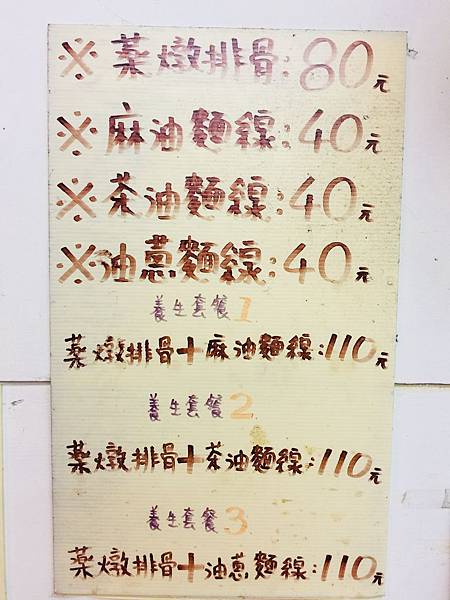 ※藥燉排骨:80元
※麻油麵線:40元
※茶油麵線:40元
※油蔥麵線:40元
養生套餐1
藥燉排骨+麻油麵線:110元
養生套餐2
藥燉排骨+茶油麵線:110元
養生套餐3
藥燉排骨+油蔥麵線:110元